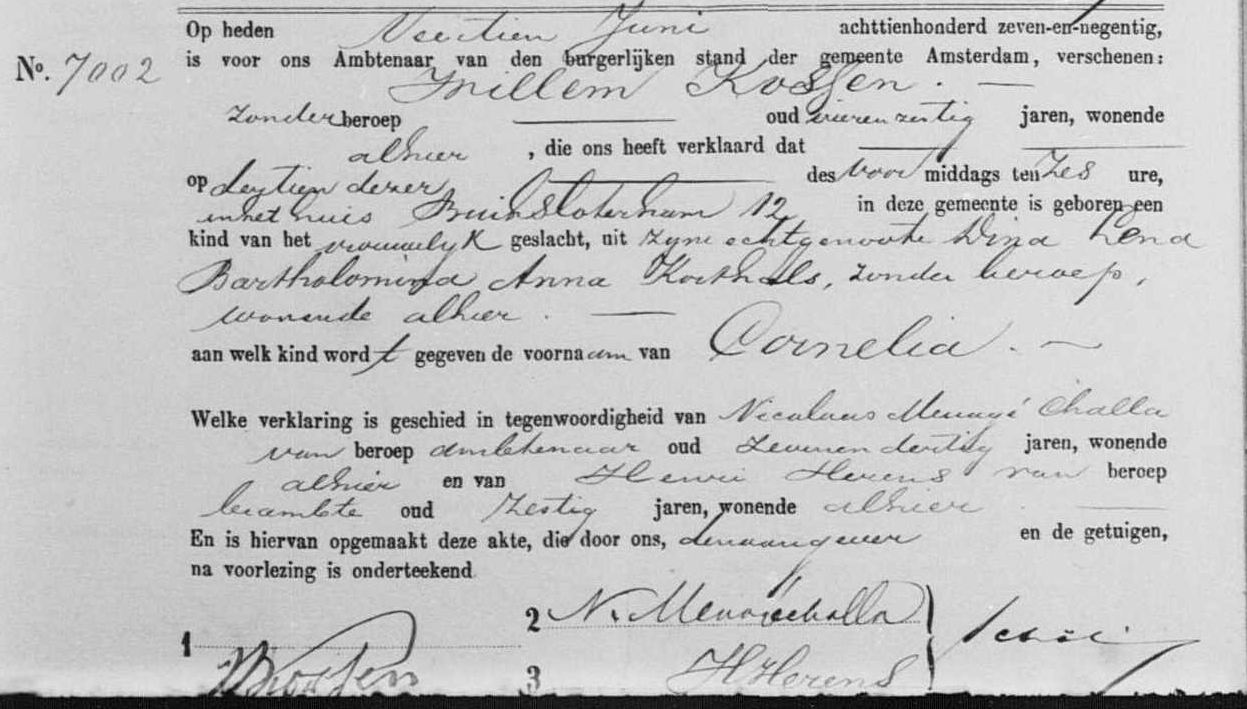 Op heden Veertien Juni achttienhonderd zeven-en-negentig,
No. 7002 is voor ons Ambtenaar van den burgerlijken stand der gemeente Amsterdam, verschenen:
Willem Kossen.
zonder beroep oud vierenzestig jaren, wonende
alhier, die ons heeft verklaard dat
op dertien dezer des voor middags ten zes ure,
in het huis Buiksloterham 12 in deze gemeente is geboren een
kind van het vrouwelyk geslacht, uit zyne echtgenoote Dina Lena
Bartholomina Anna Korthals, zonder beroep,
wonende alhier.
aan welk kind wordt gegeven de voornaam van Cornelia.
Welke verklaring is geschied in tegenwoordigheid van Nicolaas Menagé Challa
van beroep ambtenaar oud zevenendertig jaren, wonende
alhier en van Henri Herens van beroep
beambte oud zestig jaren, wonende alhier.
En is hiervan opgemaakt deze akte, die door ons, den aangever en de getuigen,
na voorlezing is onderteekend
2 N. Menagé Challa
1 W Kossen
3 H Herens